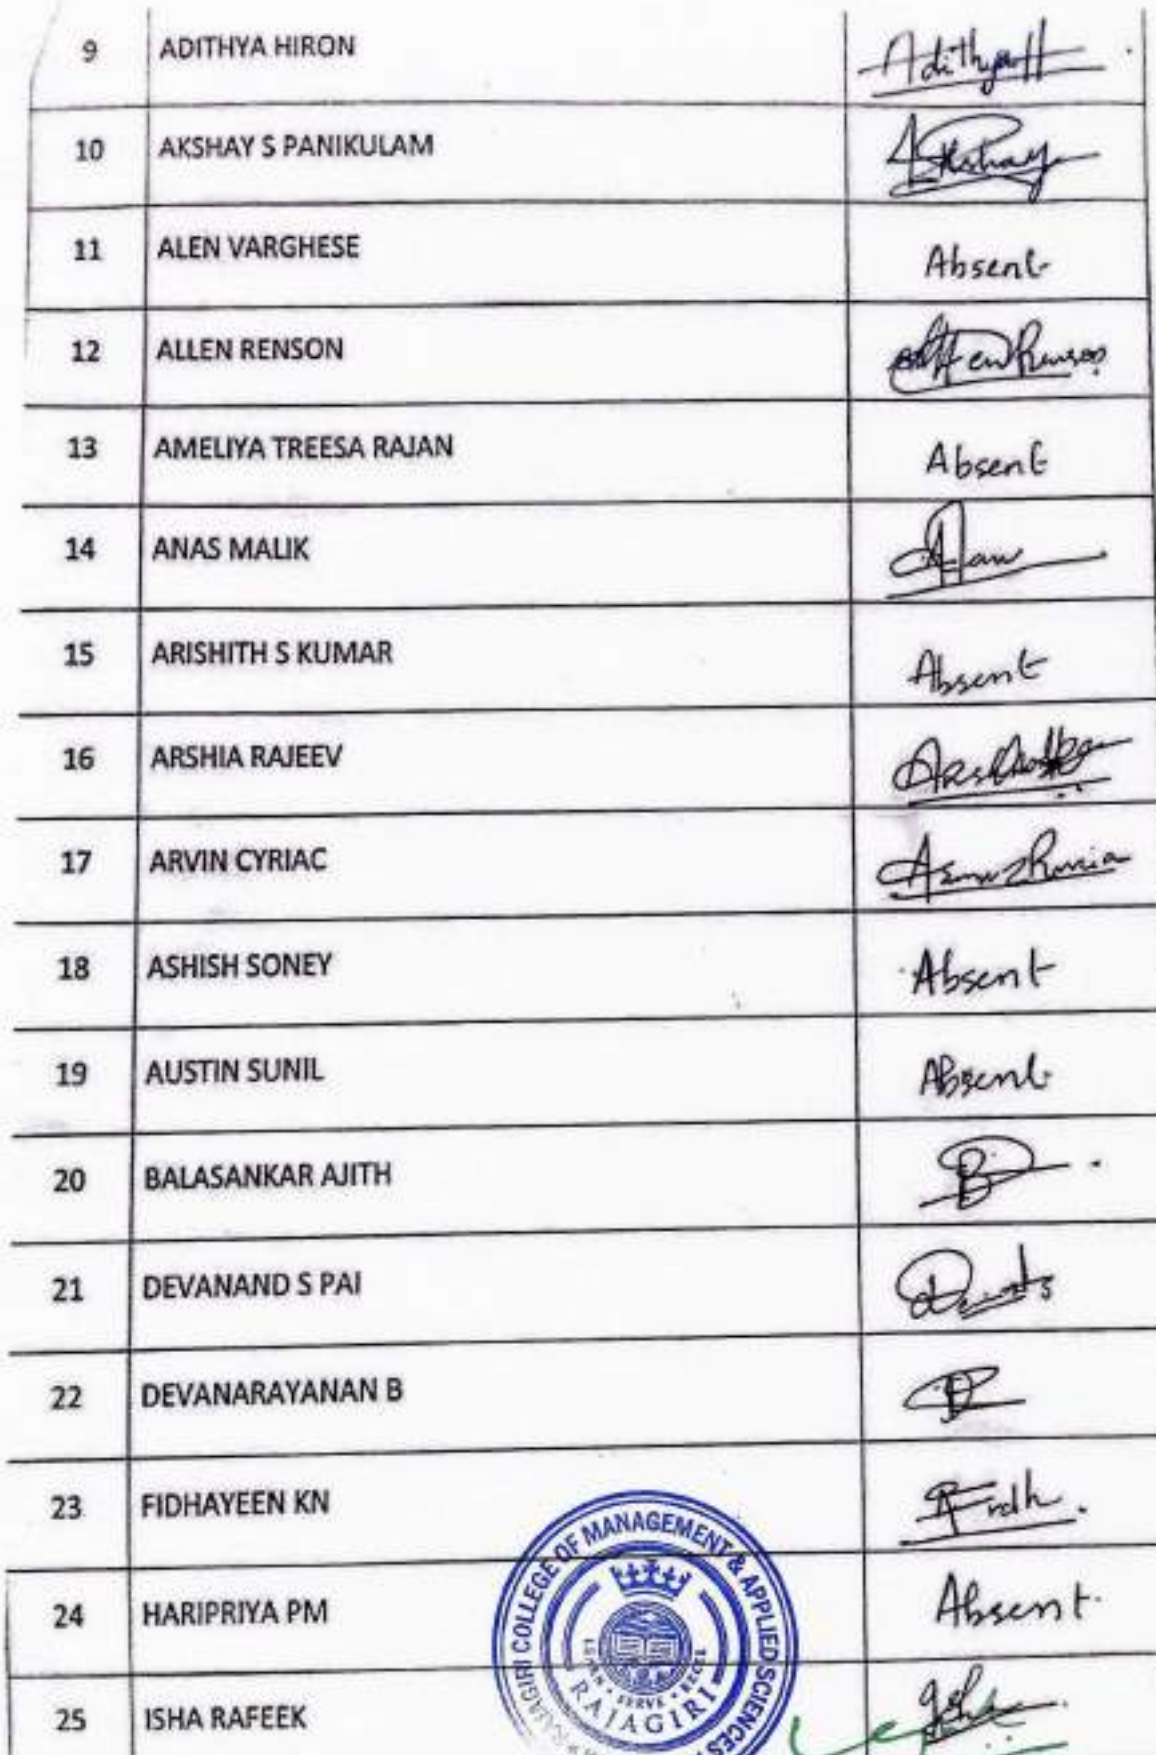 9 ADITHYA HIRON Adithya H
10 AKSHAY S PANIKULAM Akshay
11 ALEN VARGHESE Absent
12 ALLEN RENSON Allen Renson
13 AMELIYA TREESA RAJAN Absent
14 ANAS MALIK
15 ARISHITH S KUMAR Absent
16 ARSHIA RAJEEV
17 ARVIN CYRIAC
18 ASHISH SONEY Absent
19 AUSTIN SUNIL Absent
20 BALASANKAR AJITH
21 DEVANAND S PAI
22 DEVANARAYANAN B
23 FIDHAYEEN KN
24 HARIPRIYA PM Absent
25 ISHA RAFEEK
RAJAGIRI COLLEGE OF MANAGEMENT & APPLIED SCIENCES
LEARN • SERVE • EXCEL
RAJAGIRI